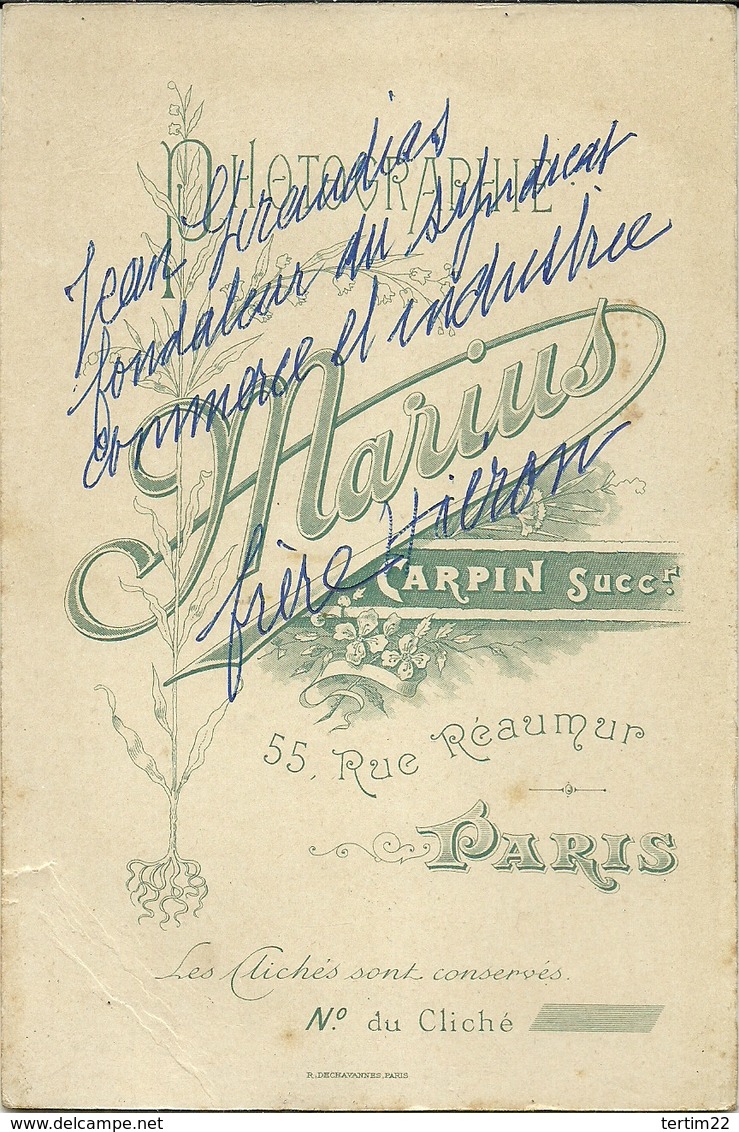 PHOTOGRAPHIE
Jean Giraudias
fondateur du syndicat
commerce et industrie
frère Hiéron
Marius
CARPIN Succr.
55, Rue Réaumur
PARIS
Les Clichés sont conservés.
N.o du Cliché
R. DECHAVANNES. PARIS
delcampe.net
tertim22